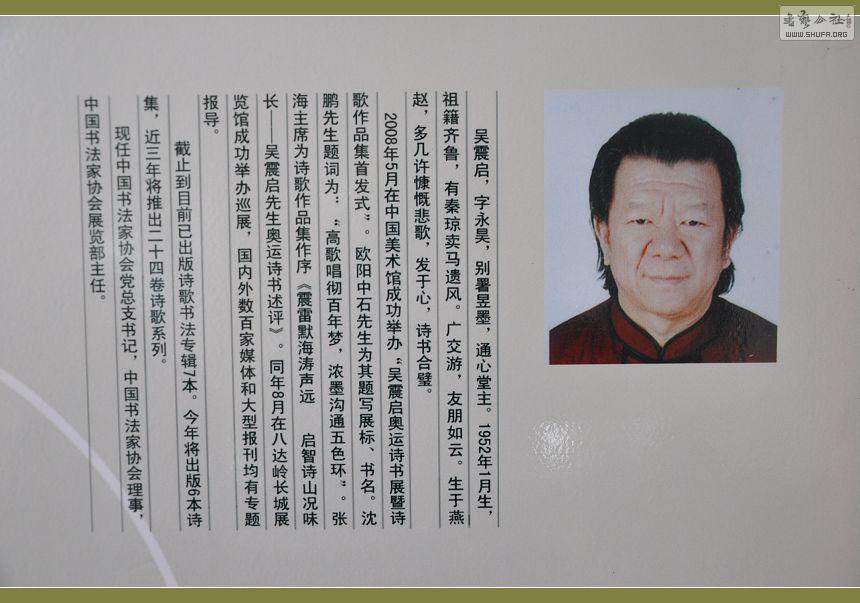 吴震启，字永昊，别署昱墨，通心堂主。1952年1月生，
祖籍齐鲁，有秦琼卖马遗风。广交游，友朋如云。生于燕
赵，多几许慷慨悲歌，发于心，诗书合璧。
2008年5月在中国美术馆成功举办“吴震启奥运诗书展暨诗
歌作品集首发式”。欧阳中石先生为其题写展标、书名。沈
鹏先生题词为：“高歌唱彻百年梦，浓墨沟通五色环”。张
海主席为诗歌作品集作序《震雷默海涛声远　启智诗山况味
长——吴震启先生奥运诗书述评》。同年8月在八达岭长城展
览馆成功举办巡展，国内外数百家媒体和大型报刊均有专题
报导。
截止到目前已出版诗歌书法专辑7本。今年将出版6本诗
集，近三年将推出二十四卷诗歌系列。
现任中国书法家协会党总支书记，中国书法家协会理事，
中国书法家协会展览部主任。
WWW.SHUFA.ORG